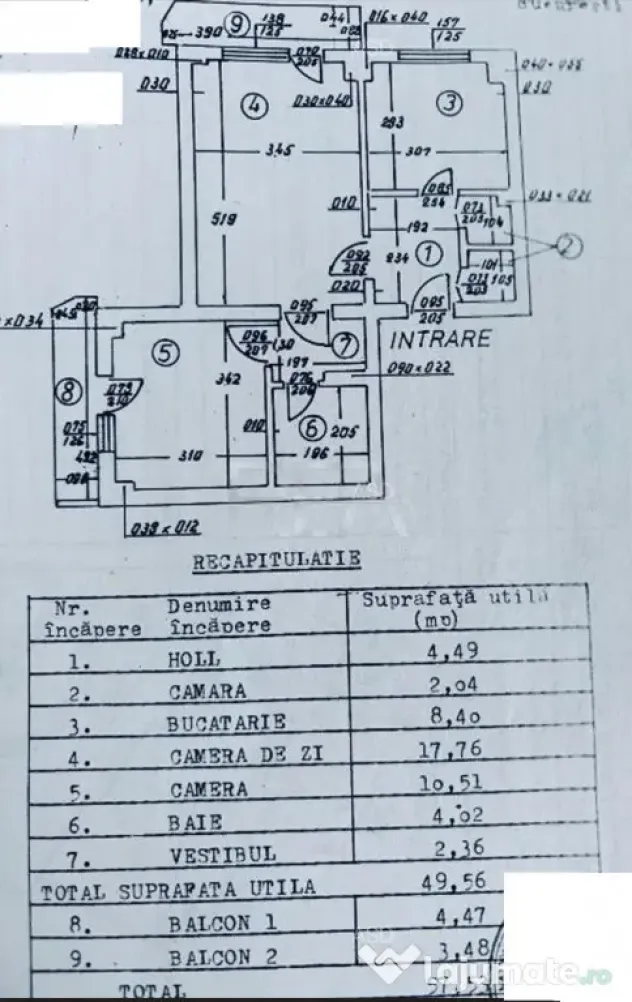 9
138
125
044
016 x 040
157
125
390
028 x 010
090
205
030
4
030 x 040
3
030
293
345
307
010
085
204
033 x 021
519
192
073
205
104
2
092
205
234
1
101
020
073
205
105
095
207
095
205
096
207
130
7
INTRARE
5
197
090 x 022
342
8
076
204
079
210
010
6
205
075
126
196
492
310
039 x 012
RECAPITULATIE
Nr. Denumire Suprafaţă utilă
încăpere încăpere (mp)
1. HOLL 4,49
2. CAMARA 2,04
3. BUCATARIE 8,40
4. CAMERA DE ZI 17,76
5. CAMERA 10,51
6. BAIE 4,02
7. VESTIBUL 2,36
TOTAL SUPRAFATA UTILA 49,56
8. BALCON 1 4,47
9. BALCON 2 3,48
TOTAL
lajumate.ro